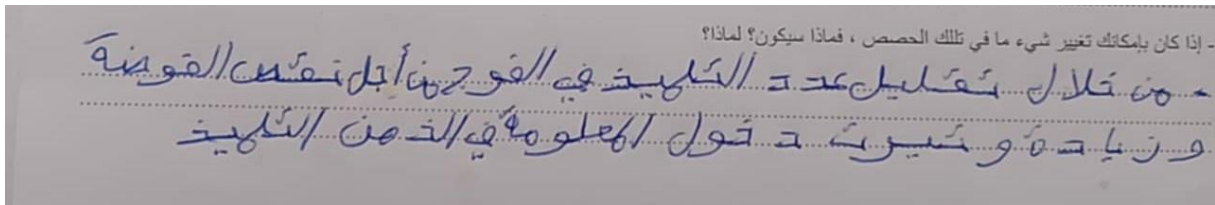 - إذا كان بإمكانك تغيير شيء ما في تلك الحصص ، فماذا سيكون؟ لماذا؟
- من خلال تقليل عدد التلميذ في الفوج من أجل نقص الفوضة
و زيادة و تيرت دخول المعلومة في الذهن التلميذ